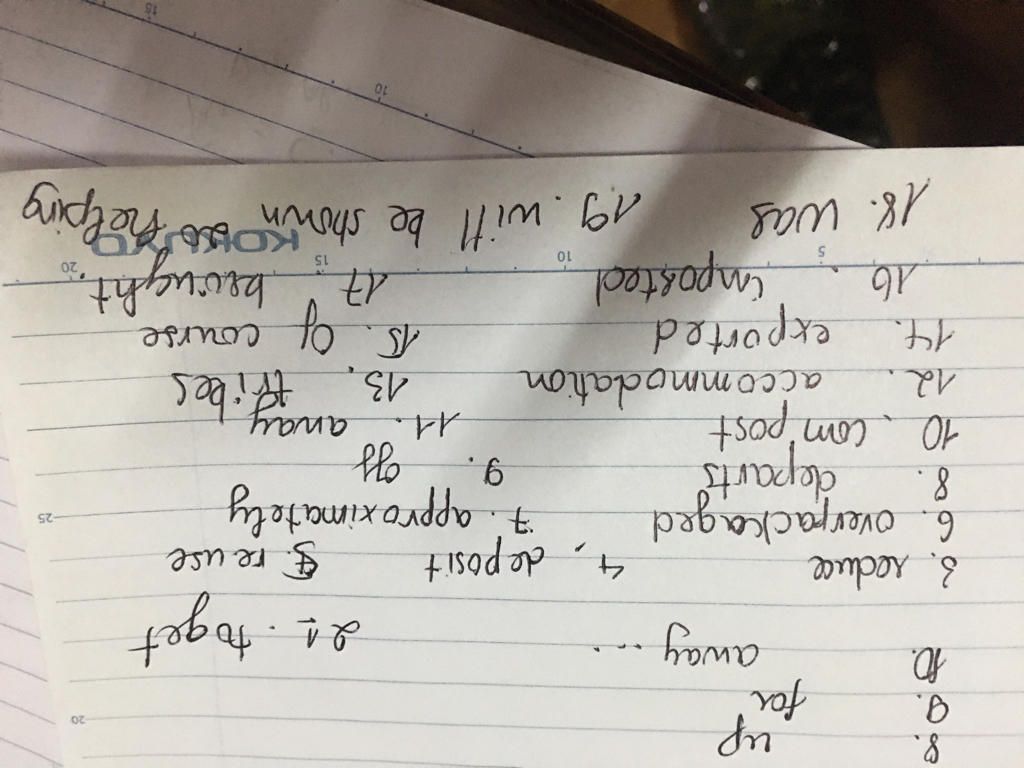 8. up
20
9. for
10. away ... 21. to get
3. reduce 4. deposit 5. reuse
6. overpackaged 7. approximately 25
8. departs 9. off
10. compost 11. away
12. accommodation 13. tribes
14. exported 15. Of course
16. imported 17. brought
5 10 15 20
KOKUYO
18. was 19. will be shown helping
10 15